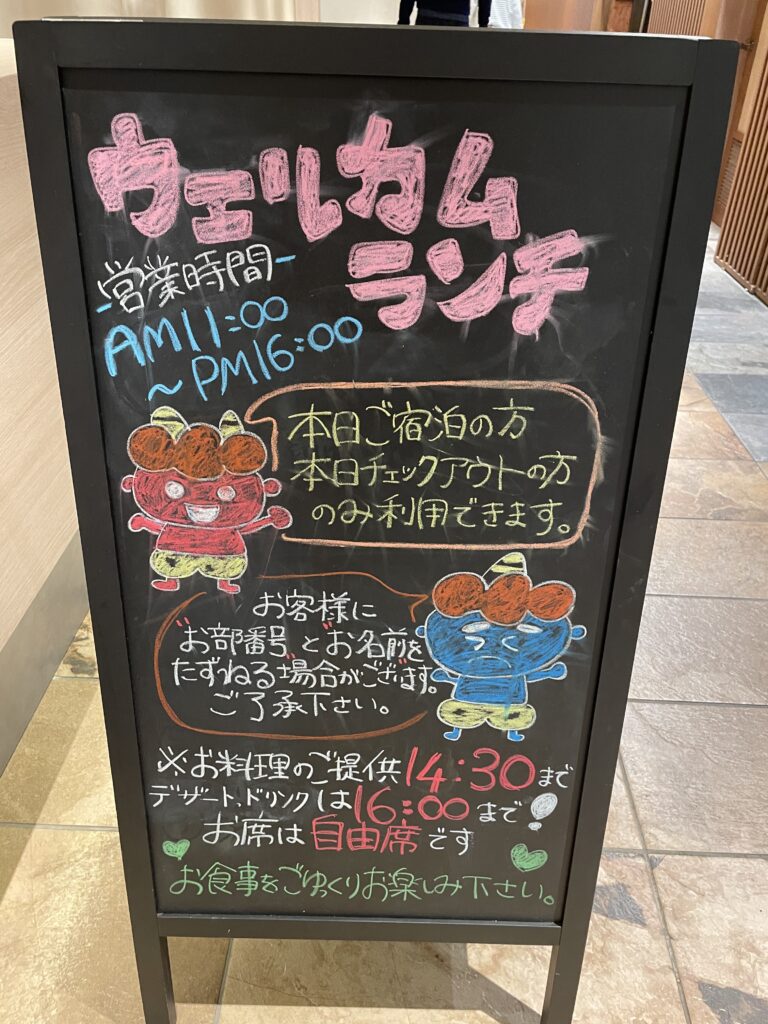 ウェルカム
ランチ
-営業時間-
AM11:00
～PM16:00
本日ご宿泊の方
本日チェックアウトの方
のみ利用できます。
お客様に
"お部番号"と"お名前"を
たずねる場合がございます。
ご了承下さい。
※お料理のご提供14:30まで
デザート、ドリンクは16:00まで!
お席は自由席です
お食事をごゆっくりお楽しみ下さい。